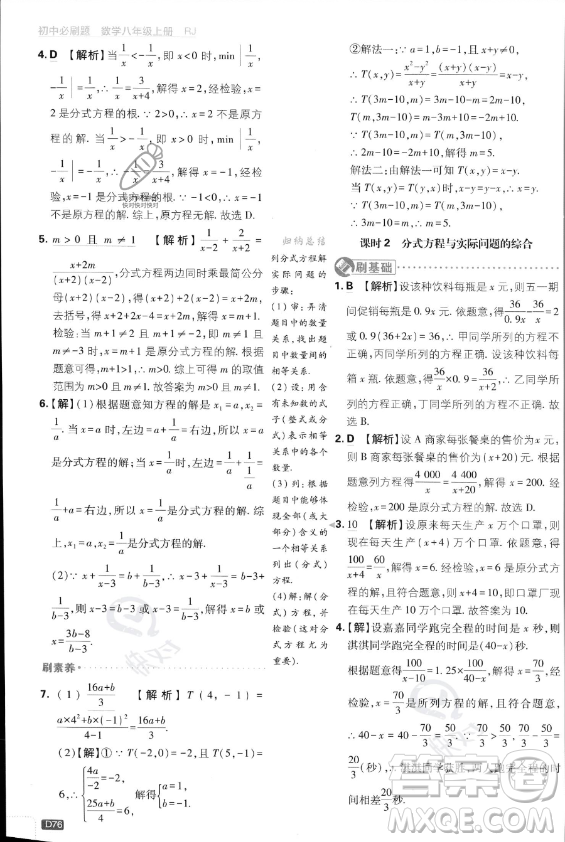 初中必刷题 数学八年级上册 RJ
4. D 【解析】当1/x<-1/x时,即x<0时,min
|1/x,-1/x|=1/x,∴1/x=3/(x+4),解得x=2,经检验,x=
2是分式方程的根.∵2>0,∴x=2不是原方
程的解.当1/x>-1/x时,即x>0时,min|1/x,
-1/x|=-1/x,∴-1/x=3/(x+4),解得x=-1,经检
验,x=-1是分式方程的根.∵-1<0,∴x=-1
快对快对快对
不是原方程的解.综上,原方程无解.故选D.
5. m>0且m≠1 【解析】1/(x-2)+2/(x+2)=
(x+2m)/((x+2)(x-2)),方程两边同时乘最简公分
母(x+2)(x-2),得x+2+2(x-2)=x+2m,
去括号,得x+2+2x-4=x+2m,解得x=m+1.
检验:当m+1≠2且m+1≠-2时,即m≠1且
m≠-3时,x=m+1是分式方程的解.根据
题意可得m+1>1,∴m>0.综上可得m的取值
范围为m>0且m≠1.故答案为m>0且m≠1.
6.【解】(1)根据题意知方程的解为x₁=a,x₂=
1/a.当x=a时,左边=a+1/a=右边,∴x₁=a
是分式方程的解;当x=1/a时,左边=1/a+1/(1/a)=
1/a+a=右边,∴x₂=1/a也是分式方程的解.综
上,x₁=a,x₂=1/a都是分式方程的解.
(2)∵x+1/(x-3)=b,∴x-3+1/(x-3)=b-3+
1/(b-3),∴x-3=b-3或x-3=1/(b-3),∴x=b或x=
(3b-8)/(b-3).
刷素养
7.(1)(16a+b)/3 【解析】T(4,-1)=
(a×4²+b×(-1)²)/(4-1)=(16a+b)/3.
(2)【解】①∵T(-2,0)=-2且T(5,-1)=
6,∴{4a/-2=-2,(25a+b)/4=6,解得{a=1,b=-1.
归纳总结
列分式方程解
实际问题的
步骤:
(1)审:弄清
题目中的数量
关系,找出题
目中的等量
关系.
(2)设:把相
关的数量关系
用含有未知数
的式子
(整式或分
式)表示出
来.
(3)列:根据
题目中能够体
现全部(或大
部分)含义的
一个相等关系
列出(分式)
方程.
(4)解:解
(分式)方程
并检验(含分
式方程尤为重
要).
②解法一:∵a=1,b=-1,且x+y≠0,
∴T(x,y)=(x²-y²)/(x+y)=((x+y)(x-y))/(x+y)=x-y.
∴T(3m-10,m)=3m-10-m=2m-10,
T(m,3m-10)=m-3m+10=-2m+10.
∵T(3m-10,m)=T(m,3m-10),
∴2m-10=-2m+10,解得m=5.
解法二:由解法一可知T(x,y)=x-y,
当T(x,y)=T(y,x)时,x-y=y-x,∴x=y.
∵T(3m-10,m)=T(m,3m-10),
∴3m-10=m,∴m=5.
课时2 分式方程与实际问题的综合
刷基础
1. B 【解析】设该种饮料每瓶是x元,则五一期
间促销价每瓶是0.9x元.依题意,得36/0.9x-36/x=2
或0.9(36+2x)=36,∴甲同学所列的方程不
正确,丙同学所列的方程正确.设该种饮料每
箱x瓶,依题意,得36/x×0.9=36/(x+2),∴乙同学所
列的方程正确,丁同学所列的方程不正确.故选B.
2. D 【解析】设A商家每张餐桌的售价为x元,
则B商家每张餐桌的售价为(x+20)元.根据
题意列方程得4 000/x=4 400/(x+20),解得x=200.经
检验,x=200是原分式方程的解.故选D.
3. 10 【解析】设原来每天生产x万个口罩,则
现在每天生产(x+4)万个口罩.依题意,得
100/(x+4)=60/x-,解得x=10.经检验,x=10是原分式方
程的解,且符合题意,则原来每天生产口罩10万
个,现在每天生产14万个口罩.故答案为10.
4.【解】设嘉嘉同学跑完全程的时间是x秒,则
淇淇同学跑完全程的时间是(40-x)秒.
根据题意得50/(x-10)=1.25×50/(40-x),解得x=70/3,经
检验,x=70/3是所列方程的解,且符合题意,
∴40-x=40-70/3=50/3.∵70/3>50/3,70/3-50/3=
20/3(秒),∴淇淇同学获胜,两人跑完全程的时
间相差20/3秒.
D76